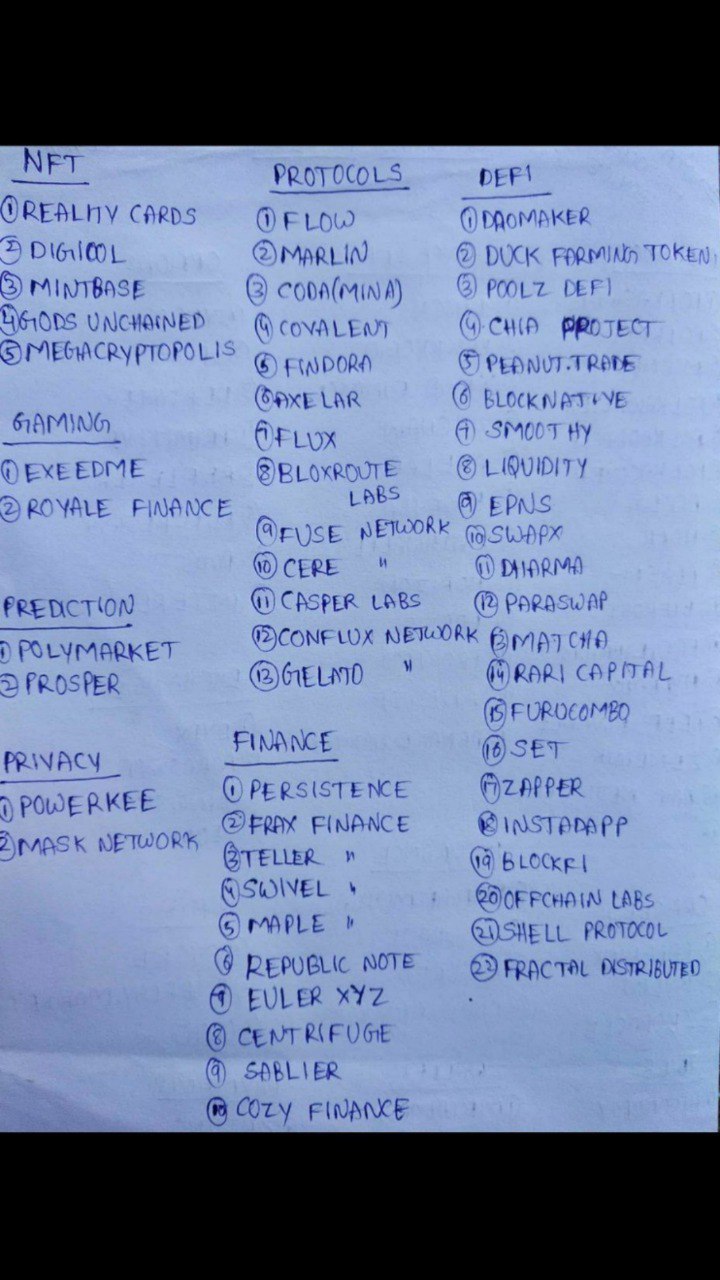 NFT
① REALITY CARDS
② DIGICOL
③ MINTBASE
④ GODS UNCHAINED
⑤ MEGACRYPTOPOLIS
GAMING
① EXEEDME
② ROYALE FINANCE
PREDICTION
① POLYMARKET
② PROSPER
PRIVACY
① POWERKEE
② MASK NETWORK
PROTOCOLS
① FLOW
② MARLIN
③ CODA(MINA)
④ COVALENT
⑤ FINDORA
⑥ AXELAR
⑦ FLUX
⑧ BLOXROUTE
LABS
⑨ FUSE NETWORK
⑩ CERE "
⑪ CASPER LABS
⑫ CONFLUX NETWORK
⑬ GELATO "
FINANCE
① PERSISTENCE
② FRAX FINANCE
③ TELLER "
④ SWIVEL "
⑤ MAPLE "
⑥ REPUBLIC NOTE
⑦ EULER XYZ
⑧ CENTRIFUGE
⑨ SABLIER
⑩ COZY FINANCE
DEFI
① DAOMAKER
② DUCK FARMING TOKEN
③ POOLZ DEFI
④ CHIA PROJECT
⑤ PEANUT.TRADE
⑥ BLOCKNATIVE
⑦ SMOOTHY
⑧ LIQUIDITY
⑨ EPNS
⑩ SWAPX
⑪ DHARMA
⑫ PARASWAP
⑬ MATCHA
⑭ RARI CAPITAL
⑮ FUROCOMBO
⑯ SET
⑰ ZAPPER
⑱ INSTADAPP
⑲ BLOCKFI
⑳ OFFCHAIN LABS
㉑ SHELL PROTOCOL
㉒ FRACTAL DISTRIBUTED